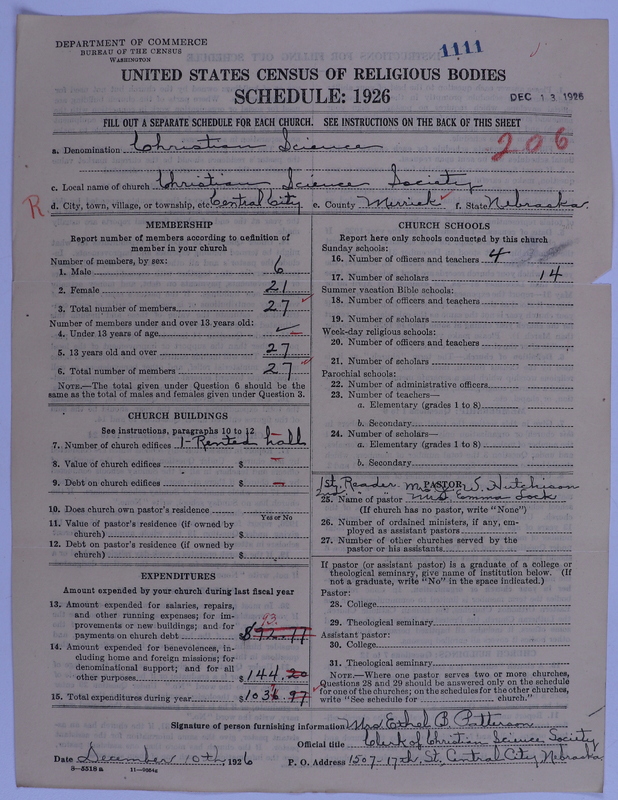 DEPARTMENT OF COMMERCE
BUREAU OF THE CENSUS
WASHINGTON
1111
UNITED STATES CENSUS OF RELIGIOUS BODIES
SCHEDULE: 1926
DEC 13 1926
FILL OUT A SEPARATE SCHEDULE FOR EACH CHURCH. SEE INSTRUCTIONS ON THE BACK OF THIS SHEET
a. Denomination Christian Science
206
c. Local name of church Christian Science Society
R
d. City, town, village, or township, etc. Central City e. County Merrick f. State Nebraska
MEMBERSHIP
Report number of members according to definition of
member in your church
Number of members, by sex:
1. Male 6
2. Female 21
3. Total number of members 27
Number of members under and over 13 years old:
4. Under 13 years of age
5. 13 years old and over 27
6. Total number of members 27
NOTE.—The total given under Question 6 should be the
same as the total of males and females given under Question 3.
CHURCH BUILDINGS
See instructions, paragraphs 10 to 12
7. Number of church edifices 1-Rented hall
8. Value of church edifices $ —
9. Debt on church edifices $ —
10. Does church own pastor's residence
Yes or No
11. Value of pastor's residence (if owned by
church) $
12. Debt on pastor's residence (if owned by
church) $
EXPENDITURES
Amount expended by your church during last fiscal year
13. Amount expended for salaries, repairs,
and other running expenses; for im-
provements or new buildings; and for
payments on church debt $892.77
93.
14. Amount expended for benevolences, in-
cluding home and foreign missions; for
denominational support; and for all
other purposes $144.20
15. Total expenditures during year $1036.97
CHURCH SCHOOLS
Report here only schools conducted by this church
Sunday schools:
16. Number of officers and teachers 4
17. Number of scholars 14
Summer vacation Bible schools:
18. Number of officers and teachers
19. Number of scholars
Week-day religious schools:
20. Number of officers and teachers
21. Number of scholars
Parochial schools:
22. Number of administrative officers
23. Number of teachers—
a. Elementary (grades 1 to 8)
b. Secondary
24. Number of scholars—
a. Elementary (grades 1 to 8)
b. Secondary
PASTOR
1st Reader W. Hutchison
2nd " "
25. Name of pastor Mrs Emma
(If church has no pastor, write "None")
26. Number of ordained ministers, if any, em-
ployed as assistant pastors
27. Number of other churches served by the
pastor or his assistants
If pastor (or assistant pastor) is a graduate of a college or
theological seminary, give name of institution below. (If
not a graduate, write "No" in the space indicated.)
Pastor:
28. College
29. Theological seminary
Assistant pastor:
30. College
31. Theological seminary
NOTE.—Where one pastor serves two or more churches,
Questions 28 and 29 should be answered only on the schedule
for one of the churches; on the schedules for the other churches,
write "See schedule for church."
Signature of person furnishing information Mrs Ethel B. Patterson
Official title Clerk of Christian Science Society
Date December 10th, 1926 P. O. Address 1507-17th. St. Central City Nebraska
8—5518 a 11—9264